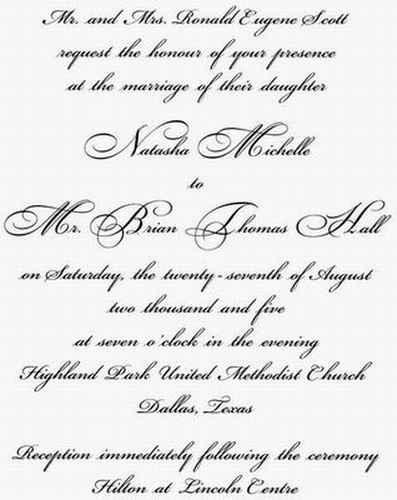 Mr. and Mrs. Ronald Eugene Scott
request the honour of your presence
at the marriage of their daughter
Natasha Michelle
to
Mr. Brian Thomas Hall
on Saturday, the twenty-seventh of August
two thousand and five
at seven o'clock in the evening
Highland Park United Methodist Church
Dallas, Texas
Reception immediately following the ceremony
Hilton at Lincoln Centre